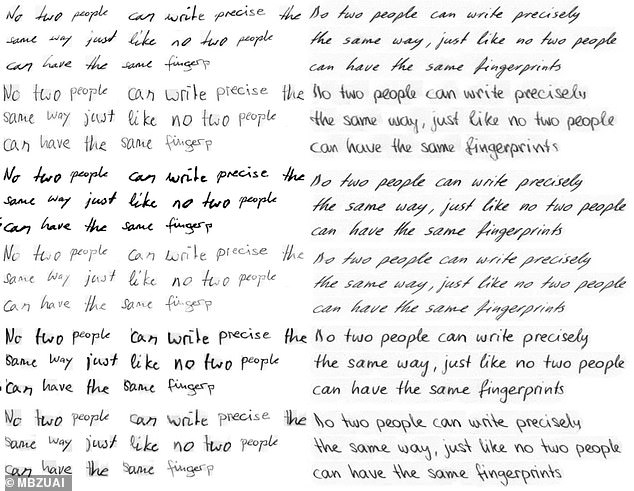 No two people can write precise the
same way just like no two people
can have the same fingerp
No two people can write precise the
same way just like no two people
can have the same fingerp
No two people can write precise the
same way just like no two people
can have the same fingerp
No two people can write precise the
same way just like no two people
can have the same fingerp
No two people can write precise the
same way just like no two people
can have the same fingerp
No two people can write precise the
same way just like no two people
can have the same fingerp
No two people can write precisely
the same way, just like no two people
can have the same fingerprints
No two people can write precisely
the same way, just like no two people
can have the same fingerprints
No two people can write precisely
the same way, just like no two people
can have the same fingerprints
No two people can write precisely
the same way, just like no two people
can have the same fingerprints
No two people can write precisely
the same way, just like no two people
can have the same fingerprints
No two people can write precisely
the same way, just like no two people
can have the same fingerprints
© MBZUAI